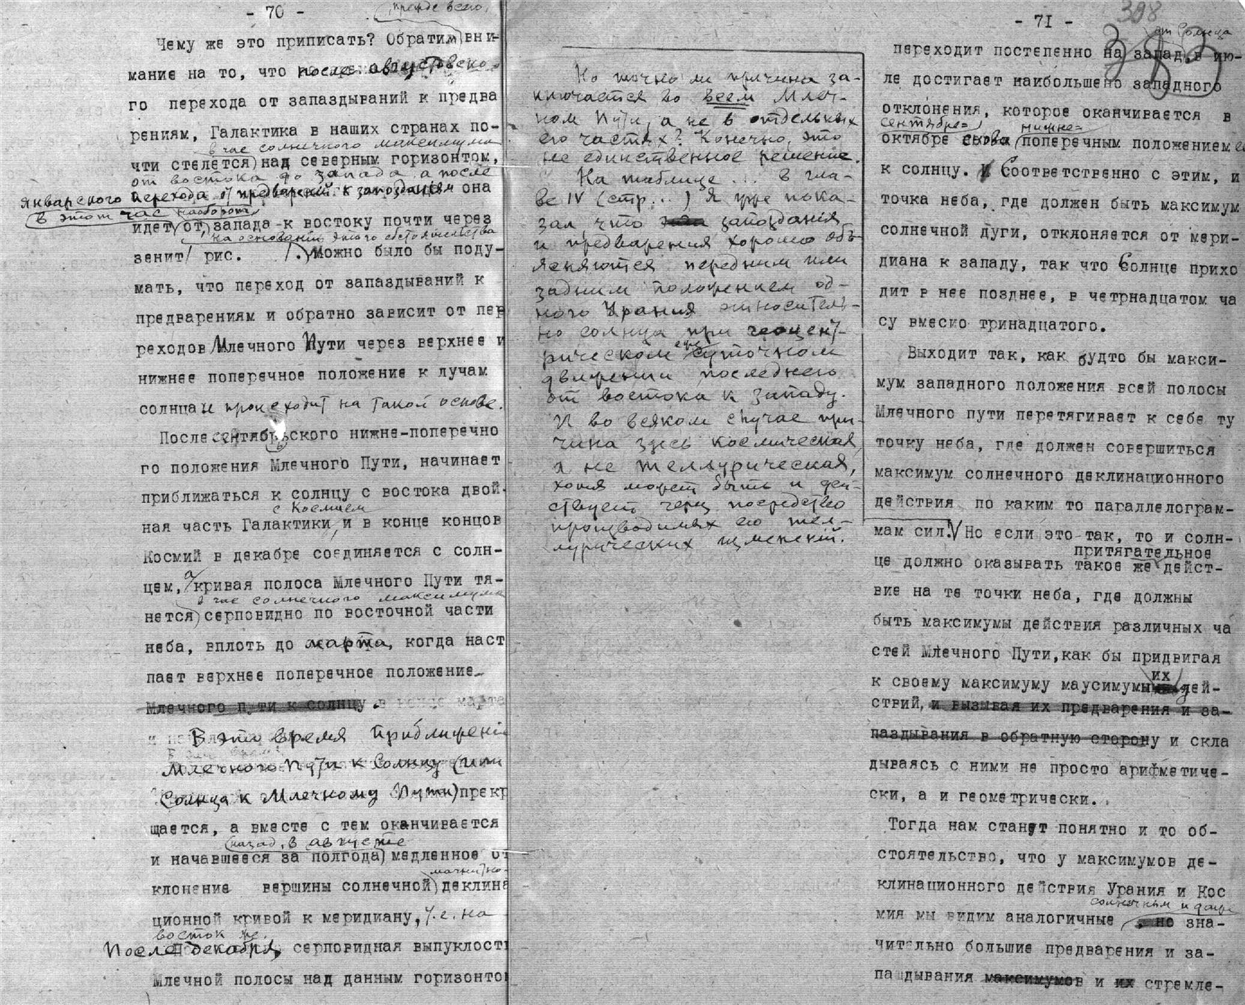 - 70 -
прежде всего,
Чему же это приписать? Обратим вни-
мание на то, что после августовско-
го перехода от запаздываний к предва
рениям, Галактика в наших странах по-
в час солнечного максимума
чти стелется над северным горизонтом,
от востока до запада, а после
январского перехода от предварений к запозданиям она
в этот час наоборот
идет от запада к востоку почти через
на основании этого обстоятельства
зенит/ рис. /. Можно было бы поду-
мать, что переход от запаздываний к
предварениям и обратно зависит от пер
реходов Млечного Пути через верхнее и
нижнее поперечное положение к лучам
солнца и происходит на такой основе.
После сентябрьского нижне-поперечно
го положения Млечного Пути, начинает
приближаться к солнцу с востока двой-
с Космием
ная часть Галактики, и в конце концов
Космий в декабре соединяется с солн-
цем, а кривая полоса Млечного Пути тя-
в час солнечного максимума
нется серповидно по восточной части
неба, вплоть до марта, когда наст
пает верхнее поперечное положение
Млечного пути к солнцу в конце марта
В это время приближение
Млечного Пути к Солнцу (или
Солнца к Млечному Пути) прекр
щается, а вместе с тем оканчивается
назад, в августе
и начавшееся за полгода медленное от
магнитно-
клонение вершины солнечной деклина
ционной кривой к меридиану, т.е. на
восток же.
После декабря, серповидная выпуклость
Млечной полосы над данным горизонтом
Но точно ли причина за-
ключается во всем Млеч-
ном Пути, а не в отдельных
его частях? Конечно, это
не единственное решение.
На таблице ... в гла-
ве IV (стр...) я уже пока-
зал, что запоздания
и предварения хорошо объ-
ясняются передним или
задним положением од-
ного Урания относитель-
но солнца при геоцент-
рическом суточном
движении последнего
от востока к западу.
И во всяком случае при-
чина здесь космическая,
а не теллурическая,
хотя может быть и дей-
ствует через посредство
производимых ею тел-
лурических изменений.
- 71 -
398
от Солнца
переходит постепенно на запад, в ию-
ле достигает наибольшего западного
отклонения, которое оканчивается в
сентябре- нижне-
октябре снова поперечным положением е
к солнцу. Соответственно с этим, и
точка неба, где должен быть максимум
солнечной дуги, отклоняется от мери-
диана к западу, так что Солнце прихо
дит в нее позднее, в четрнадцатом ча
су вмеско тринадцатого.
Выходит так, как будто бы макси-
мум западного положения всей полосы
Млечного пути перетягивает к себе ту
точку неба, где должен совершиться
максимум солнечного деклинационного
действия по каким то параллелограм-
мам сил. Но если это так, то и солн-
притягательное
це должно оказывать такое же дейст-
вие на те точки неба, где должны
быть максимумы действия различных ча
стей Млечного Пути, как бы придвигая
их
к своему максимуму маусимумы дей-
ствий, и вызывая их предварения и за-
паздывания в обратную сторону и скла
дываясь с ними не просто арифметиче-
ски, а и геометрически.
Тогда нам станет понятно и то об-
стоятельство, что у максимумов де-
клинационного действия Урания и Кос
солнечным и даже
мия мы видим аналогичные но зна-
чительно большие предварения и за-
паздывания максимумов и их стремле-